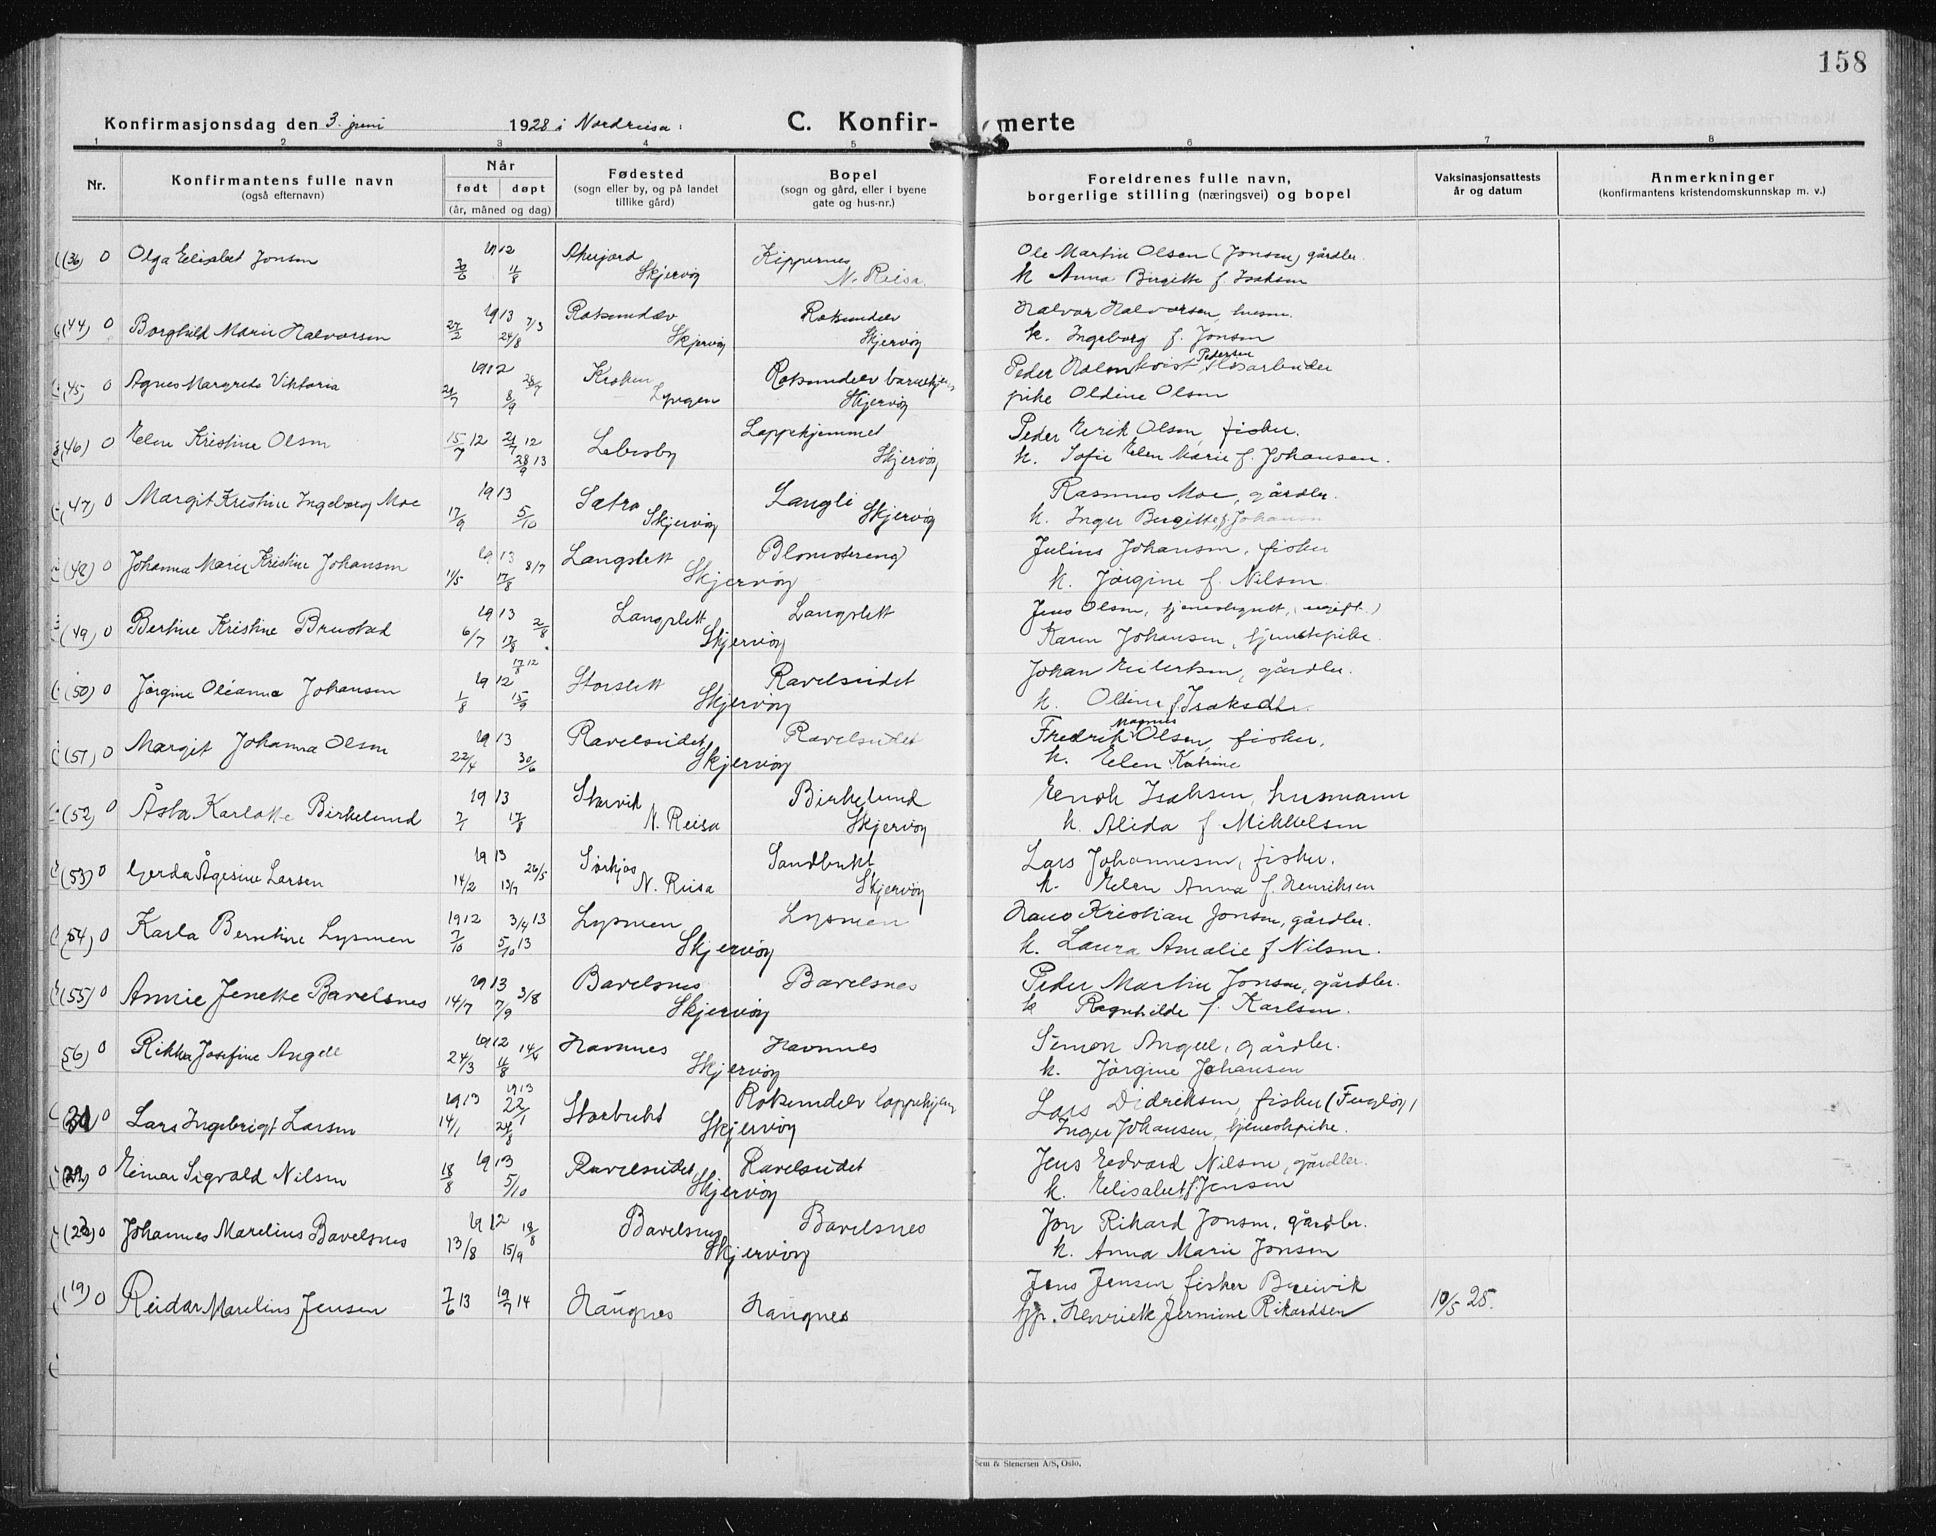 158
Konfirmasjonsdag den 3. juni 1928 i Nordreisa. C. Konfir- merte
1 2 3 4 5 6 7 8
Nr.
Konfirmantens fulle navn
(også efternavn)
Når
født døpt
(år, måned og dag)
Fødested
(sogn eller by, og på landet
tillike gård)
Bopel
(sogn og gård, eller i byene
gate og hus-nr.)
Foreldrenes fulle navn,
borgerlige stilling (næringsvei) og bopel
Vaksinasjonsattests
år og datum
Anmerkninger
(konfirmantens kristendomskunnskap m. v.)
(36) 0 Olga Elisabet Jonsen 1912 Kippernes Ole Martin Olsen (Jonsen) gårdbr.
30/6 11/8 Skjervøy N. Reisa. k Anna Birgitte f. Isaksen
(44) 0 Borghild Marie Halvorsen 1913 7/3 Rotsundelv Rotsundelv Halvor Halvorsen, husm.
27/2 24/8 Skjervøy Skjervøy k. Ingeborg f. Jonsen
(45) 0 Agnes Margrete Viktoria 1912 28/7 Lyngen Rotsundelv barnehjem Skjervøy Peder Holmkvist Pedersen
21/7 8/9 pike Oldine Olsen
(46) 0 Elen Kristine Olsen 15/7 12 21/7 12 28/9 13 Lebesby Lappehjemmet Skjervøy Peder Eirik Olsen, fisker.
k. Sofie Elen Marie f. Johansen.
(47) 0 Margit Kristine Ingeborg Moe 1913 Sætra Langli Rasmus Moe, gårdbr.
17/9 5/10 Skjervøy Skjervøy k. Inger Birgitte f. Johansen
(48) 0 Johanna Marie Kristine Johansen 1913 8/7 Langslett Blomstereng Julius Johansen, fisker
11/5 17/8 Skjervøy k. Jørgine f. Nilsen.
(49) 0 Bertine Kristine Brustad 1913 2/8 Langslett Langslett Jens Olsen, tjenestegutt, (ugift)
6/7 17/8 Skjervøy Karen Johansen, tjenestepike.
(50) 0 Jørgine Oleanna Johansen 1912 17/8 12 Storslett Ravelseidet Johan Eilertsen, gårdbr.
1/8 15/9 Skjervøy k. Oldine f. Isaksdtr.
(51) 0 Margit Johanna Olsen 1913 Ravelseidet Ravelseidet Fredrik Magnus Olsen, fisker.
22/4 30/6 Skjervøy k. Elen Katrine
(52) 0 Åsta Karlotte Birkelund 1913 Storvik Birkelund Enok Isaksen, husmann
7/1 17/8 N. Reisa Skjervøy k. Alida f Mikkelsen
(53) 0 Gerda Ågesine Larsen 1913 26/5 Sørkjos Sandbukt Lars Johannesen, fisker.
14/2 13/7 N. Reisa Skjervøy k. Elen Anna f. Henriksen
(54) 0 Karla Berntine Lysmen 1912 3/4 13 Lysmen Lysmen Hans Kristian Jonsen, gårdbr.
7/10 5/10 13 Skjervøy k. Laura Amalie f Nilsen.
(55) 0 Annie Jenette Bavelsnes 1913 3/8 Bavelsnes Bavelsnes Peder Martin Jonsen, gårdbr.
14/7 7/9 Skjervøy k Ragnhilde f. Karlsen.
(56) 0 Rikka Josefine Angell 1912 14/4 Havnnes Havnnes Simon Angell, gårdbr.
24/3 11/8 Skjervøy k. Jørgine Johansen
0 Lars Ingebrigt Larsen 1913 1913 22/1 Storbukt Rotsundelv lappehjem Lars Didriksen, fisker (Fugløy)
14/1 24/8 Skjervøy Inger Johansen, tjenestepike.
0 Einar Sigvald Nilsen 1913 Ravelseidet Ravelseidet Jens Edvard Nilsen, gårdbr.
18/8 5/10 Skjervøy k. Elisabet f. Jensen
0 Johannes Marelius Bavelsnes 1912 18/8 Bavelsnes Bavelsnes Jon Rikard Jonsen, gårdbr.
13/8 15/9 Skjervøy k. Anna Marie Jonsen
(19) 0 Reidar Marelius Jensen 7/6 13 19/7 14 Haugnes Haugnes Jens Jensen fisker Breivik
tjp. Henriette Jermine Rikardsen 10/5 25.
Sem & Stenersen A/S, Oslo.